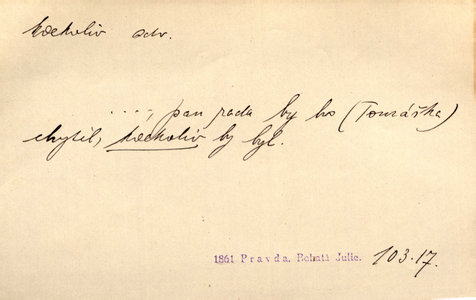 kdekoliv adv.
...., pan rada by ho (Tomáška)
chytil, kdekoliv by byl.
1861 Pravda, Bohatá Julie. 103.17.